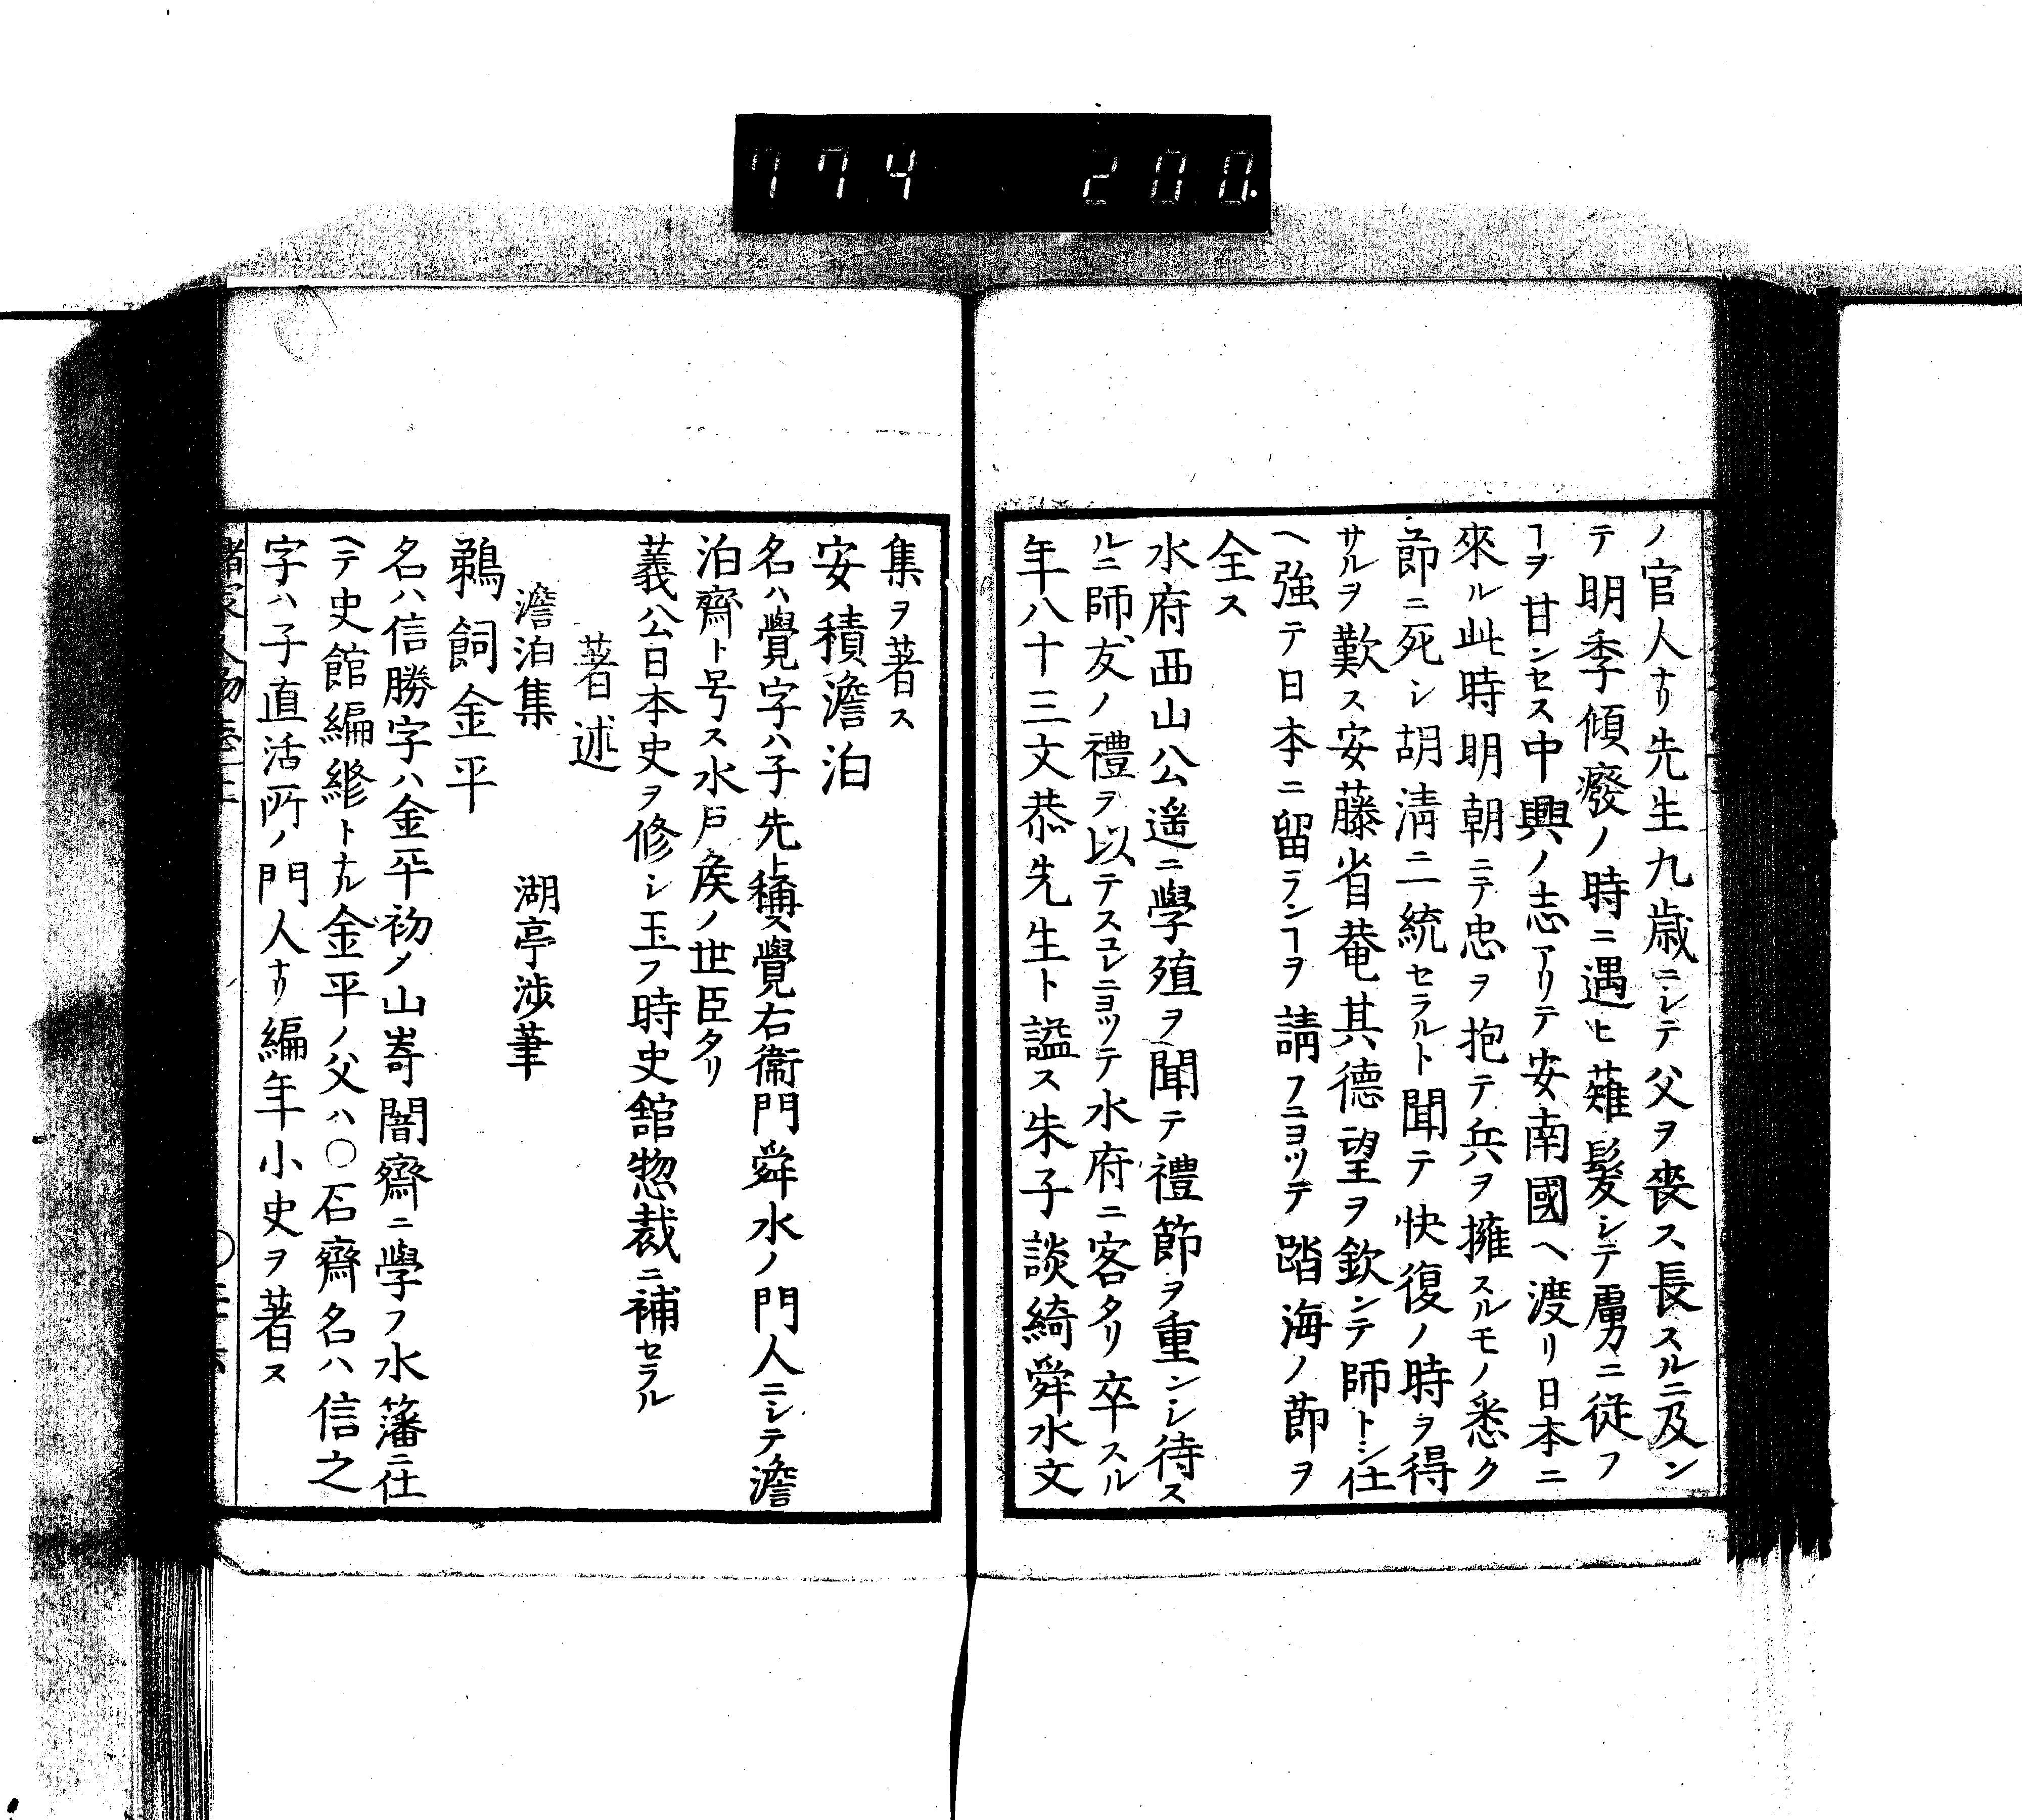 774 200.
ノ官人ナリ先生九歳ニシテ父ヲ喪ス長スルニ及ン
テ明季傾癈ノ時ニ遇ヒ薙髮シテ虜ニ従フ
ヿヲ甘ンセス中興ノ志アリテ安南國ヘ渡リ日本ニ
來ル此時明朝ニテ忠ヲ抱テ兵ヲ擁スルモノ悉ク
節ニ死シ胡清ニ一統セラルト聞テ快復ノ時ヲ得
サルヲ歎ス安藤省菴其德望ヲ欽ンテ師トシ仕
ヘ強テ日本ニ留ランヿヲ請フニヨツテ踏海ノ節ヲ
全ス
水府西山公遥ニ學殖ヲ聞テ禮節ヲ重ンシ待ス
ルニ師友ノ禮ヲ以テスコレニヨツテ水府ニ客タリ卒スル
年八十三文恭先生ト謚ス朱子談綺舜水文
集ヲ著ス
安積澹泊
名ハ覺字ハ子先上稱ス覺右衞門舜水ノ門人ニシテ澹
泊齋ト号ス水戸矦ノ世臣タリ
義公日本史ヲ修シ玉フ時史舘惣裁ニ補セラル
著述
澹泊集 湖亭渉筆
鵜飼金平
名ハ信勝字ハ金平初メ山嵜闇齋ニ學フ水藩ニ仕
ヘテ史館編修トナル金平ノ父ハ〇石齋名ハ信之
字ハ子直活所ノ門人ナリ編年小史ヲ著ス